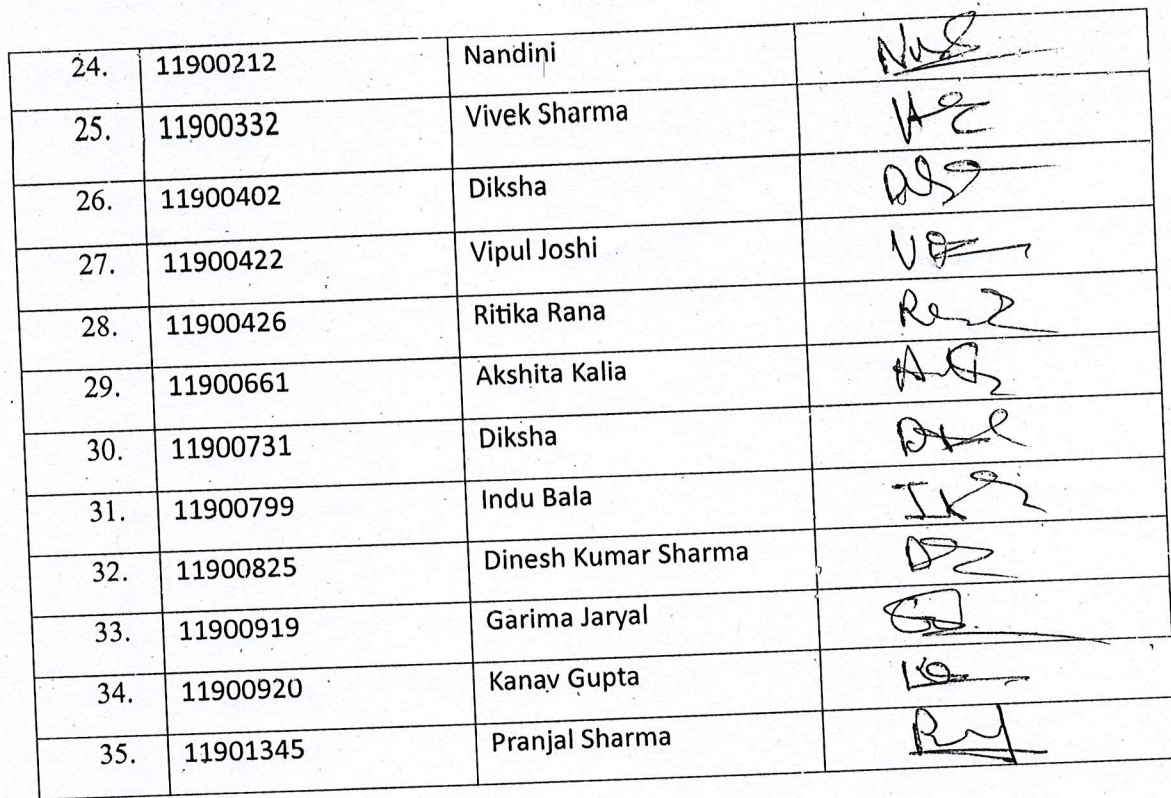 24. 11900212 Nandini
25. 11900332 Vivek Sharma
26. 11900402 Diksha
27. 11900422 Vipul Joshi
28. 11900426 Ritika Rana
29. 11900661 Akshita Kalia
30. 11900731 Diksha
31. 11900799 Indu Bala
32. 11900825 Dinesh Kumar Sharma
33. 11900919 Garima Jaryal
34. 11900920 Kanav Gupta
35. 11901345 Pranjal Sharma